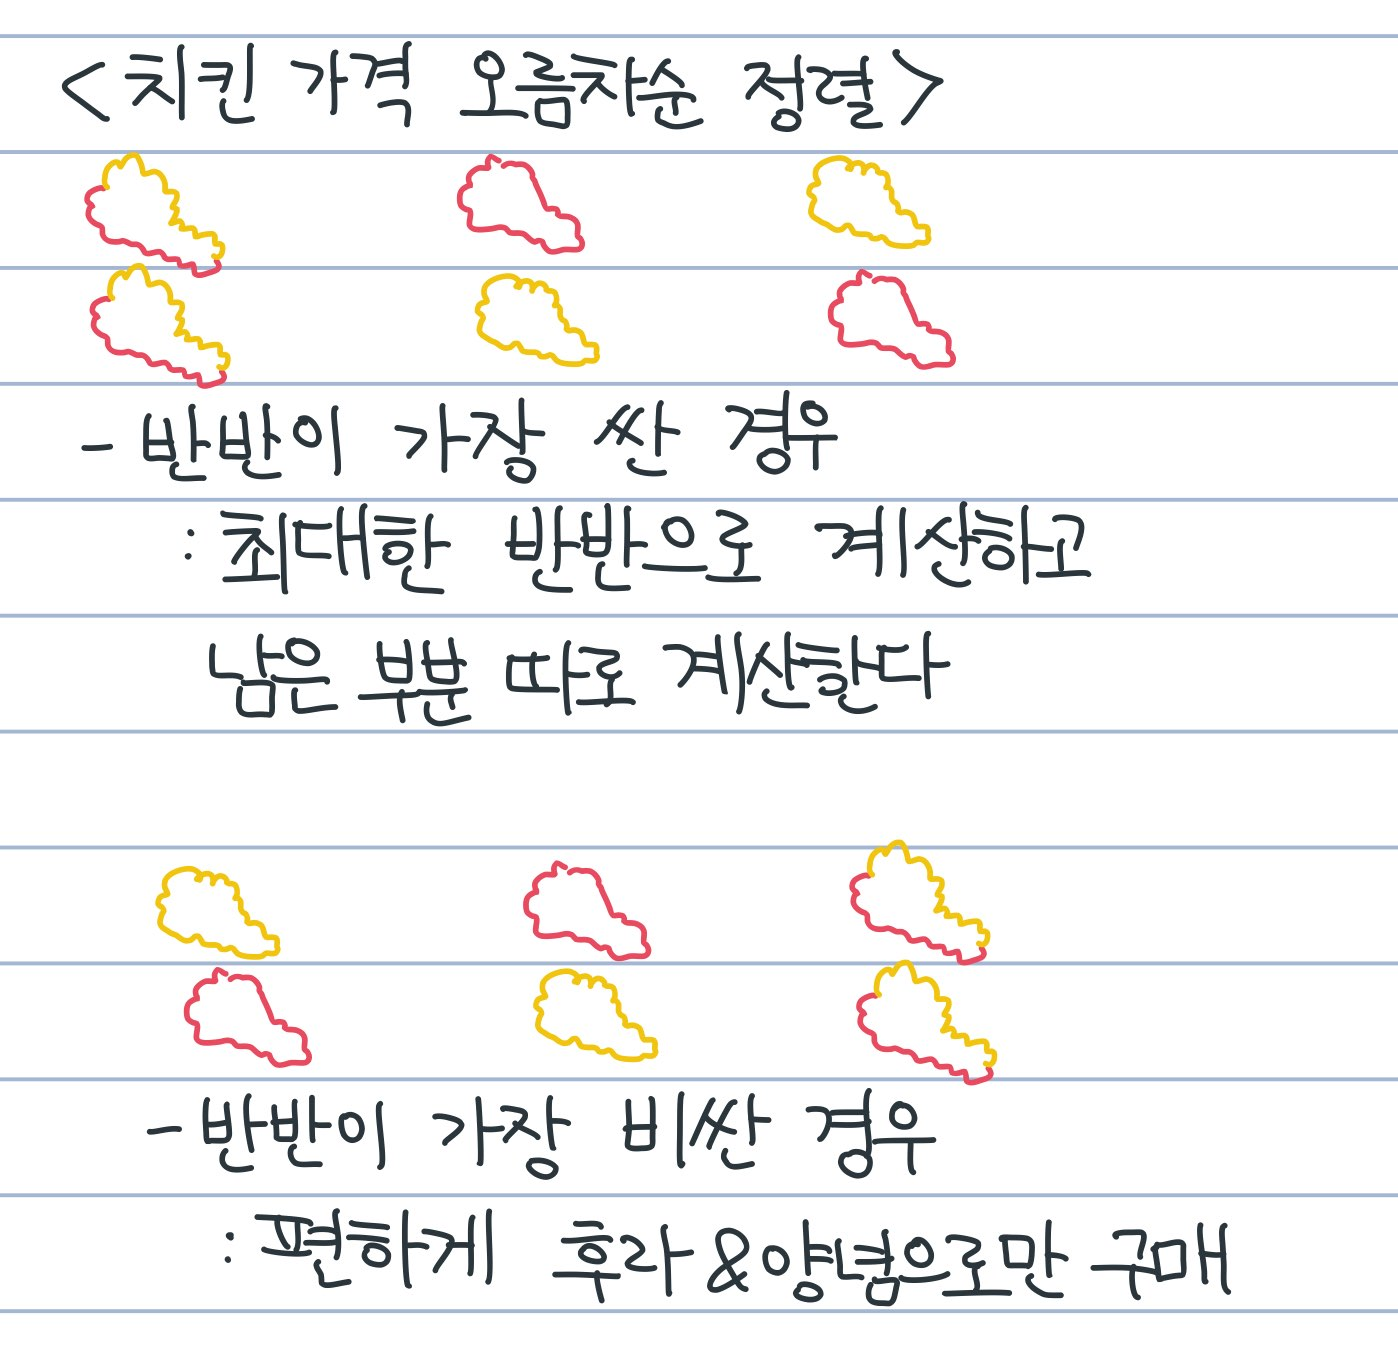 <치킨 가격 오름차순 정렬>
- 반반이 가장 싼 경우
: 최대한 반반으로 계산하고
남은 부분 따로 계산한다
- 반반이 가장 비싼 경우
: 편하게 후라&양념으로만 구매